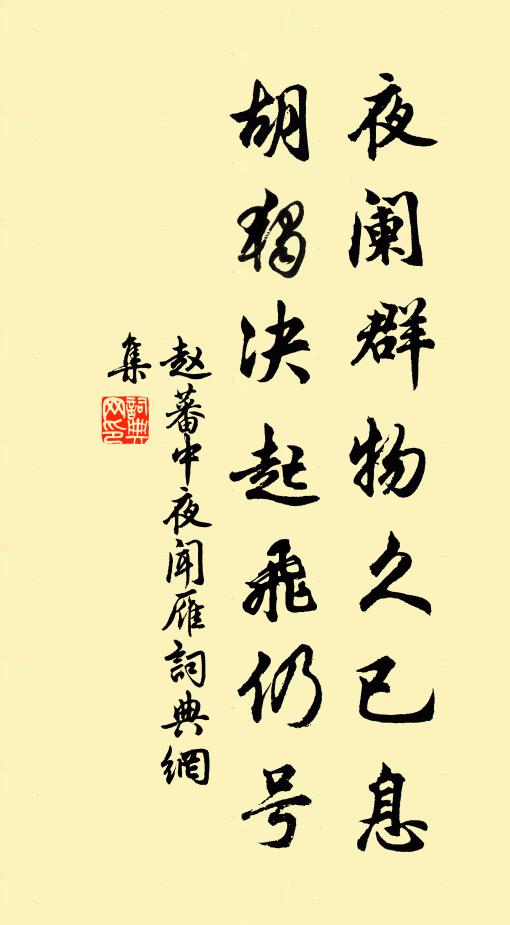 夜阑群物久已息
胡独决起飛仍号
赵蕃中夜闻雁詞典網
集
詞典
网印